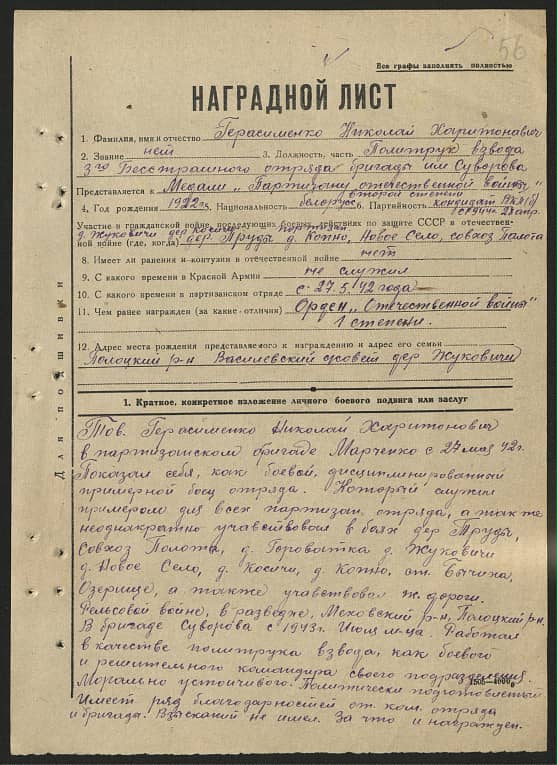 56
Все графы заполнять полностью
НАГРАДНОЙ ЛИСТ
1. Фамилия, имя и отчество Герасименко Николай Харитонович
2. Звание нет 3. Должность, часть Политрук взвода
3го Бесстрашного отряда бригады им Суворова
Представляется к Медали „Партизану отечественной войны"
второй степени
4. Год рождения 1922 г. 5. Национальность белорус 6. Партийность кандидат ВКП(б)
Участие в гражданской войне, последующих боевых действиях по защите СССР и отечествен-
ной войне (где, когда) д. Жуковичи дер. Труды д. Копно, Новое Село, совхоз Полота
8. Имеет ли ранения и контузии в отечественной войне нет
9. С какого времени в Красной Армии не служил
10. С какого времени в партизанском отряде с 27.5.42 года
11. Чем ранее награжден (за какие отличия) Орден „Отечественной войны"
1 степени.
12. Адрес места рождения представляемого к награждению и адрес его семьи
Полоцкий р-н Василевский дер Жуковичи
Для подшивки
1. Краткое, конкретное изложение личного боевого подвига или заслуг
Тов. Герасименко Николай Харитонович
в партизанской бригаде Марченко с 27 мая 42 г.
Показал себя, как боевой, дисциплинированный
примерной боец отряда. Который служил
примером для всех партизан отряда, а также
неоднократно учавствовал в боях дер Труды,
Совхоз Полота, д. Жуковичи
д. Новое Село, д. Косичи, д. Копно, ст. Бычиха,
Озерище, а также учавствовал ж. дороги.
Рельсовой войне, в разведке, Меховский р-н, Полоцкий р-н.
В бригаде Суворова с 1943 г. Июль м-ца. Работал
в качестве политрука взвода, как боевого
и решительного командира своего подразделения.
Морально устойчивого. Политически подготовленный
Имеет ряд благодарностей от ком. отряда
и бригада. Взысканий не имел. За что и награжден.